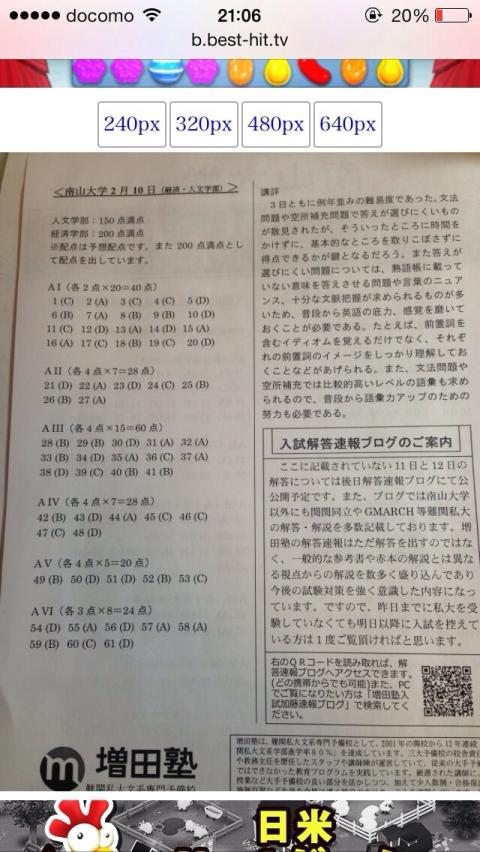 docomo 21:06 20%
b.best-hit.tv
240px 320px 480px 640px
＜南山大学2月10日（経済・人文学部）＞
人文学部：150点満点
経済学部：200点満点
※配点は予想配点です。また200点満点とし
て配点を出しています。
A I（各2点×20=40点）
1 (C) 2 (A) 3 (C) 4 (C) 5 (D)
6 (B) 7 (A) 8 (B) 9 (B) 10 (D)
11 (C) 12 (D) 13 (A) 14 (D) 15 (A)
16 (A) 17 (C) 18 (B) 19 (C) 20 (D)
A II（各4点×7=28点）
21 (D) 22 (A) 23 (D) 24 (C) 25 (B)
26 (B) 27 (A)
A III（各4点×15=60点）
28 (B) 29 (B) 30 (D) 31 (A) 32 (A)
33 (B) 34 (D) 35 (A) 36 (C) 37 (A)
38 (D) 39 (C) 40 (B) 41 (B)
A IV（各4点×7=28点）
42 (B) 43 (D) 44 (A) 45 (C) 46 (C)
47 (C) 48 (D)
A V（各4点×5=20点）
49 (B) 50 (D) 51 (D) 52 (B) 53 (C)
A VI（各3点×8=24点）
54 (D) 55 (A) 56 (D) 57 (A) 58 (A)
59 (B) 60 (C) 61 (D)
講評
3日ともに例年並みの難易度であった。文法
問題や空所補充問題で答えが選びにくいもの
が散見されたが、そういったところに時間を
かけずに、基本的なところを取りこぼさずに
得点できるかが鍵となるだろう。また答えが
選びにくい問題については、熟語帳に載って
いない意味を答えさせる問題や言葉のニュア
ンス、十分な文脈把握が求められるものが多
いため、普段から英語の底力、感覚を磨いて
おくことが必要である。たとえば、前置詞を
含むイディオムを覚えるだけでなく、それぞ
れの前置詞のイメージをしっかり理解してお
くことなどがあげられる。また、文法問題や
空所補充では比較的高いレベルの語彙も求め
られるので、普段から語彙力アップのための
努力も必要である。
入試解答速報ブログのご案内
ここに記載されていない11日と12日の
解答については後日解答速報ブログにて公
公開予定です。また、ブログでは南山大学
以外にも関関同立やGMARCH等難関私大
の解答・解説を多数記載しております。増
田塾の解答速報はただ解答を出すのではな
く、一般的な参考書や赤本の解説とは異な
る視点からの解説を数多く盛り込んであり
今後の試験対策を強く意識した内容になっ
ています。ですので、昨日までに私大を受
験していなくても明日以降に入試を控えて
いる方は1度ご覧頂ければと思います。
右のQRコードを読み取れば、解
答速報ブログへアクセスできます。
(どの携帯からでも可能)また、PC
でご覧になりたい方は「増田塾入
試加藤速報ブログ」で検索してく
ださい。
m 増田塾
難関私大文系専門予備校
増田塾は、難関私大文系専門予備校として、2001年の開校から12年連続
関私大文系学部進学率80%」を達成しています。三大予備校の校舎責任
や教務主任を歴任したスタッフや講師陣が運営していて、従来の大手予
ではできなかった教育プログラムを実践しています。厳選された講師に
授業など大手予備校の良い部分を活かしつつ、加えて少人数制・合格保
日米